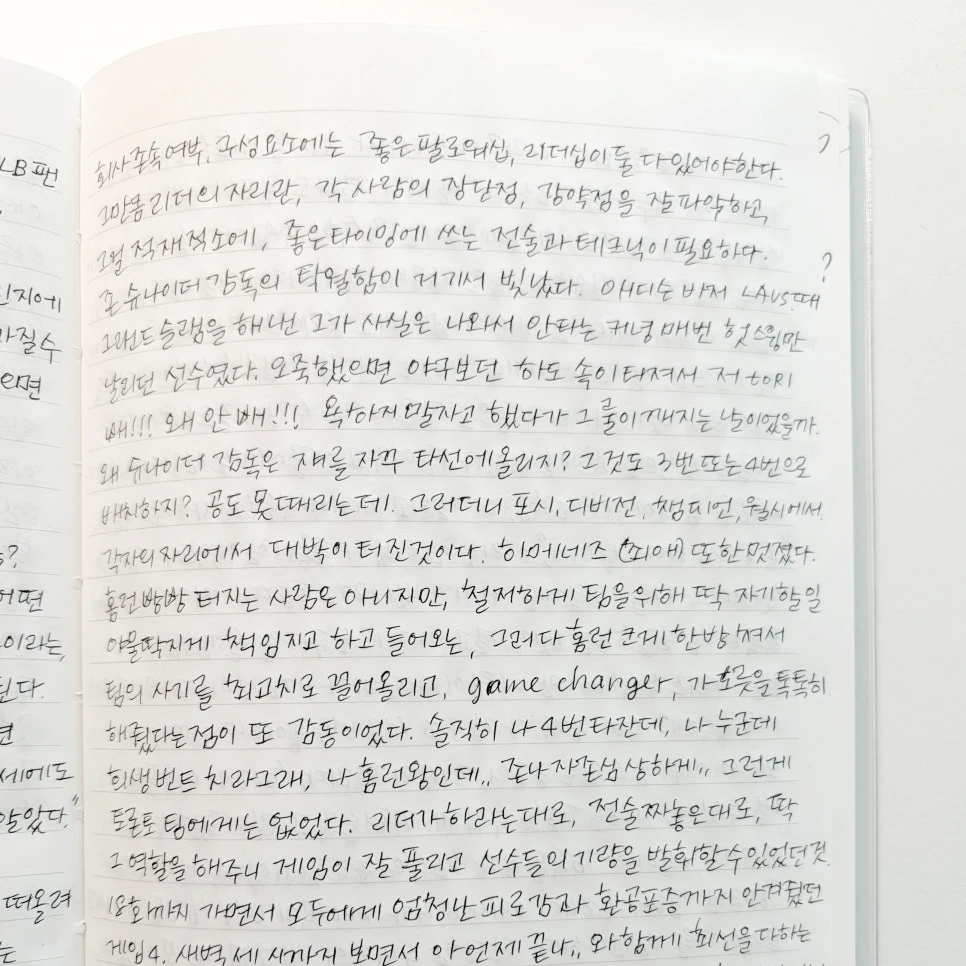 LB 팬
인지에
가질수
으면
?
어떤
이라는,
된다.
면
세에도
알았다."
떠올려
는
회사 존속여부, 구성요소에는 좋은 팔로워십, 리더십이 둘 다 있어야한다.
그만큼 리더의 자리란, 각 사람의 장단점, 강약점을 잘 파악하고,
그걸 적재적소에, 좋은 타이밍에 쓰는 전술과 테크닉이 필요하다.
존 슈나이더 감독의 탁월함이 거기서 빛났다. 애디슨 바저 LAvs.때
그랜드슬램을 해낸 그가 사실은 나와서 안타는 커녕 매번 헛스윙만
날리던 선수였다. 오죽했으면 야구보던 하도 속이 터져서 저 tori
빼!!! 왜 안 빼!!! 욕하지 말자고 했다가 그 룰이 깨지는 날이었을까.
왜 슈나이더 감독은 쟤를 자꾸 타선에 올리지? 그것도 3번 또는 4번으로
배치하지? 공도 못 때리는데. 그러더니 포시, 디비전, 챔피언, 월시에서
각자의 자리에서 대박이 터진것이다. 히메네즈 (최애) 또한 멋졌다.
홈런 빵빵 터지는 사람은 아니지만, 철저하게 팀을 위해 딱 자기 할 일
야물딱지게 책임지고 하고 들어오는, 그러다 홈런 크게 한방 쳐서
팀의 사기를 최고치로 끌어올리고, game changer, 가교롯을 톡톡히
해줬다는 점이 또 감동이었다. 솔직히 나 4번타잔데, 나 누군데
희생번트 치라그래, 나 홈런왕인데,, 존나 자존심 상하게,, 그런게
토론토 팀에게는 없었다. 리더가 하라는대로, 전술 짜놓은대로, 딱
그 역할을 해주니 게임이 잘 풀리고 선수들의 기량을 발휘할 수 있었던 것.
18회까지 가면서 모두에게 엄청난 피로감과 환공포증까지 안겨줬던
게임4. 새벽 세 시까지 보면서 아 언제 끝나,, 와 함께 최선을 다하는